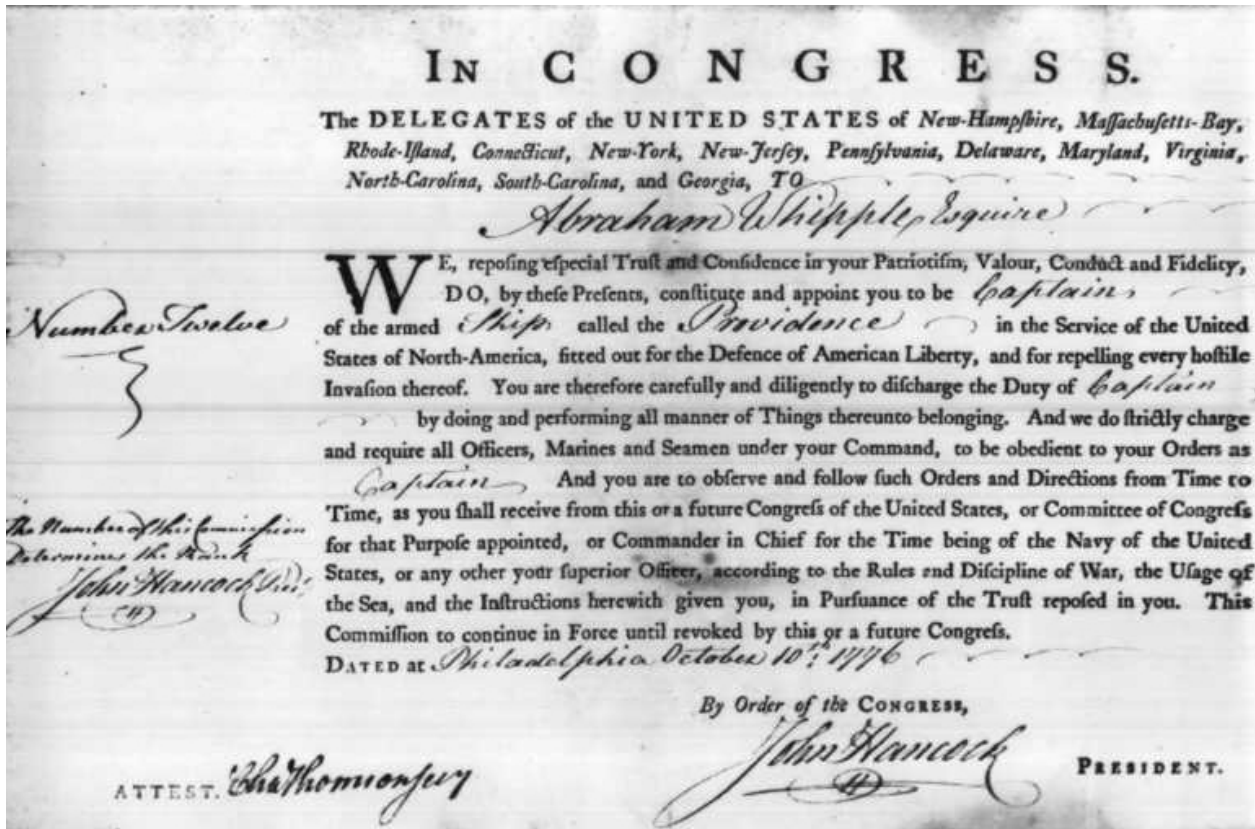 IN CONGRESS.
The DELEGATES of the UNITED STATES of New-Hampſhire, Maſſachuſetts-Bay,
Rhode-Iſland, Connecticut, New-York, New-Jerſey, Pennſylvania, Delaware, Maryland, Virginia,
North-Carolina, South-Carolina, and Georgia, TO
Abraham Whipple, Esquire
WE, repoſing eſpecial Truſt and Confidence in your Patriotiſm, Valour, Conduct and Fidelity,
DO, by theſe Preſents, conſtitute and appoint you to be Captain
of the armed Ship called the Providence in the Service of the United
States of North-America, fitted out for the Defence of American Liberty, and for repelling every hoſtile
Invaſion thereof. You are therefore carefully and diligently to diſcharge the Duty of Captain
by doing and performing all manner of Things thereunto belonging. And we do ſtrictly charge
and require all Officers, Marines and Seamen under your Command, to be obedient to your Orders as
Captain And you are to obſerve and follow ſuch Orders and Directions from Time to
Time, as you ſhall receive from this or a future Congreſs of the United States, or Committee of Congreſs
for that Purpoſe appointed, or Commander in Chief for the Time being of the Navy of the United
States, or any other your ſuperior Officer, according to the Rules and Diſcipline of War, the Uſage of
the Sea, and the Inſtructions herewith given you, in Purſuance of the Truſt repoſed in you. This
Commiſſion to continue in Force until revoked by this or a future Congreſs.
DATED at Philadelphia October 10th. 1776
By Order of the CONGRESS,
John Hancock PRESIDENT.
ATTEST. Cha Thomson secy
Number Twelve
The Number of this Commission
Determines the Rank
John Hancock Presᵗ